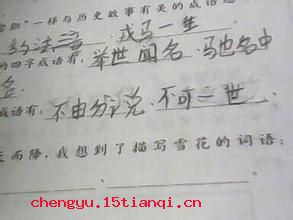 一样与历史故事有关的成语还
约法三 戎马一生
的四字成语有: 举世闻名 马也名中
成语有: 不由分说、不可一世
而降,我想到了描写雪花的词语:
chengyu.15tianqi.cn